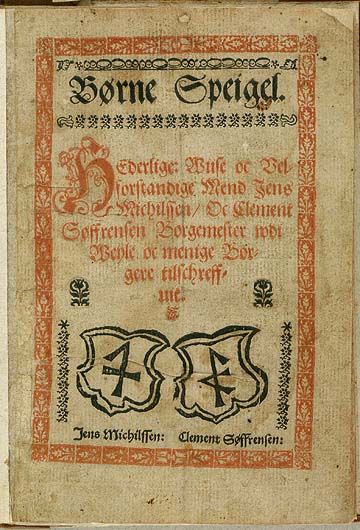 Børne Speigel.
HEderlige: Wuse oc Vel-
forstandige Mend Jens
Michilssen/ Oc Clement
Søffrensen Borgemester wdi
Weyle oc menige Bor-
gere tilschreff-
uit.
Jens Michilssen: Clement Søffrensen: